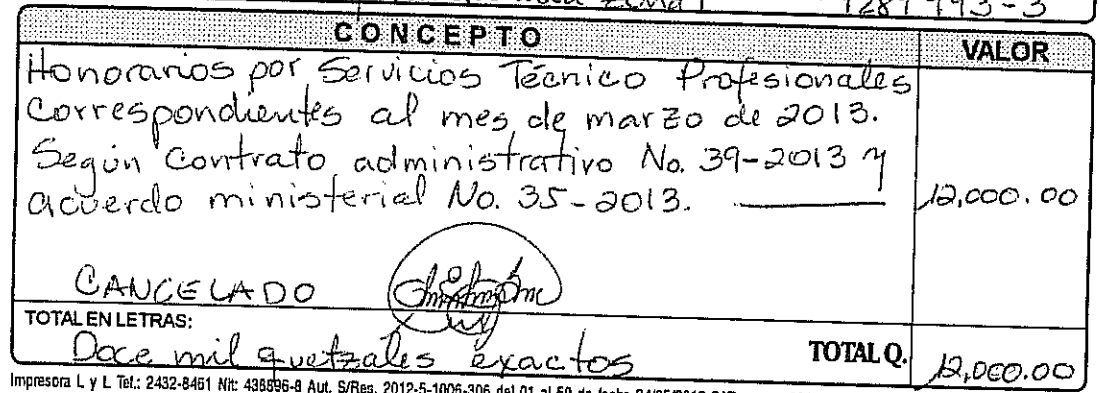 CONCEPTO VALOR
Honorarios por Servicios Técnico Profesionales
Correspondientes al mes de marzo de 2013.
Según Contrato administrativo No. 39-2013 y
acuerdo ministerial No. 35-2013. 12,000.00
CANCELADO
TOTAL EN LETRAS:
Doce mil quetzales exactos TOTAL Q. 12,000.00
Impresora L y L Tel.: 2432-8461 Nit: Aut. S/Res. 2012-5-1006-306 del 01 al 50 de fecha